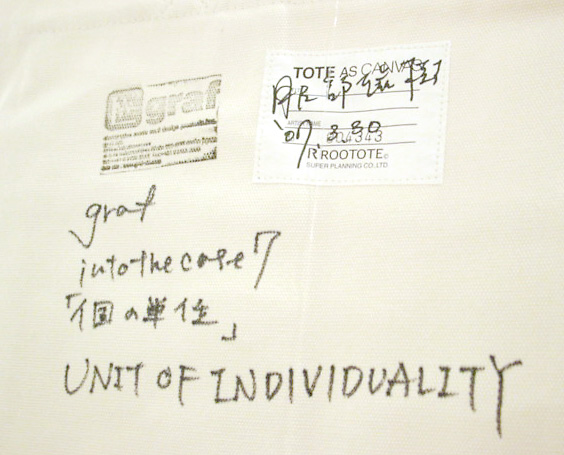 graf
TOTE AS CANVAS
服部滋樹
'07. 3. 30
004343
ROOTOTE
SUPER PLANNING CO.,LTD.
graf
intothecase7
「個の単位」
UNIT OF INDIVIDUALITY